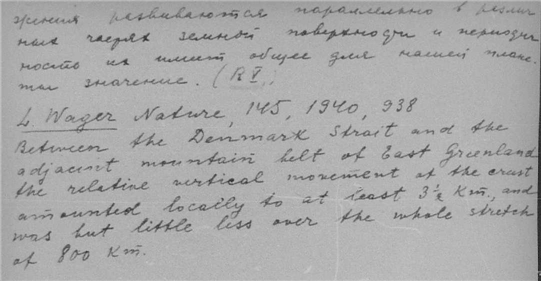 жения развиваются параллельно в различ
ных частях земной поверхности и периодич
ность их имеет общее для нашей плане-
ты значение. (R V.)
L Wager Nature, 145, 1940, 938
Between the Denmark Strait and the
adjacent mountain belt of East Greenland
the relative vertical movement of the crust
amounted locally to at least 3½ Km, and
was but little less over the whole stretch
of 800 Km.